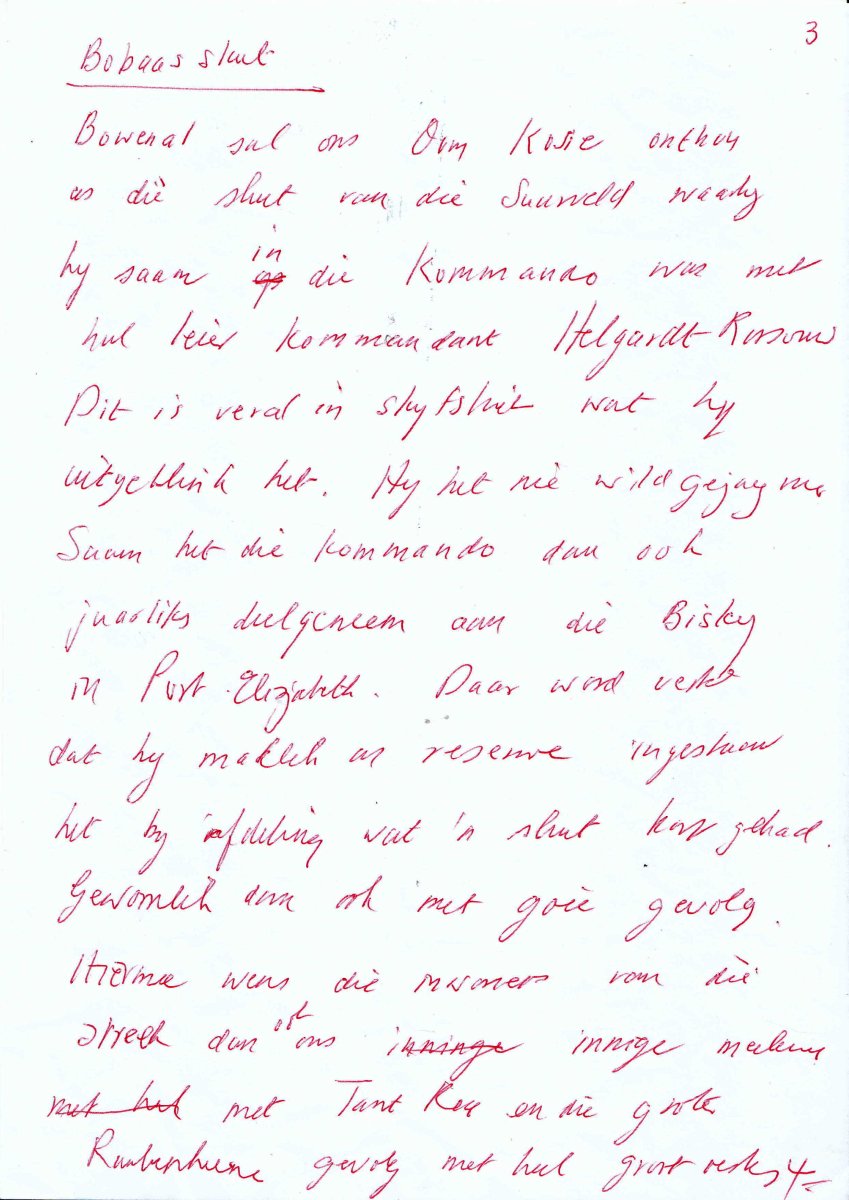 3
Bobaas skut
Bowenal sal ons Oom Kosie onthou
as dié skut van die Suurveld waarby
hy saam in die Kommando was met
hul leier kommandant Helgardt Rossouw
Dit is veral in skyfskiet wat hy
uitgeblink het. Hy het nie wild gejag nie
Saam het die kommando dan ook
jaarliks deelgeneem aan die Bisley
in Port Elizabeth. Daar word vertel
dat hy maklik as reserwe ingestaan
het by afdeling wat 'n skut kort gehad.
Gewoonlik dan ook met goeie gevolg.
Hiermee wens die inwoners van die
streek dan ook ons inninge innige meelewing
met hul met Tant Kea en die groter
gevolg met hul groot verlies